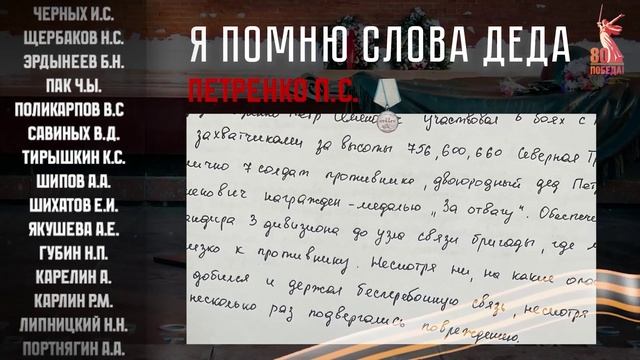 ЧЕРНЫХ И.С.
ЩЕРБАКОВ Н.С.
ЭРДЫНЕЕВ Б.Н.
ПАК Ч.Ы.
ПОЛИКАРПОВ В.С
САВИНЫХ В.Д.
ТИРЫШКИН К.С.
ШИПОВ А.А.
ШИХАТОВ Е.И.
ЯКУШЕВА А.Е.
ГУБИН Н.П.
КАРЕЛИН А.
КАРЛИН Р.М.
ЛИПНИЦКИЙ Н.Н.
ПОРТНЯГИН А.А.
Я ПОМНЮ СЛОВА ДЕДА
80
ПОБЕДА!
ПЕТРЕНКО П.С.
участвовал в боях с
захватчиками за высоты 756, 600, 660 Северная
ично 7 солдат противника, двоюродный дед Пет
енович награжден - медалью „За отвагу". Обеспече
андира 3 дивизиона до узла связи бригады, где
изко к противнику. Несмотря ни, на какие опа
добился и держал бесперебойную связь, несмотря
несколько раз подвергались повреждению.